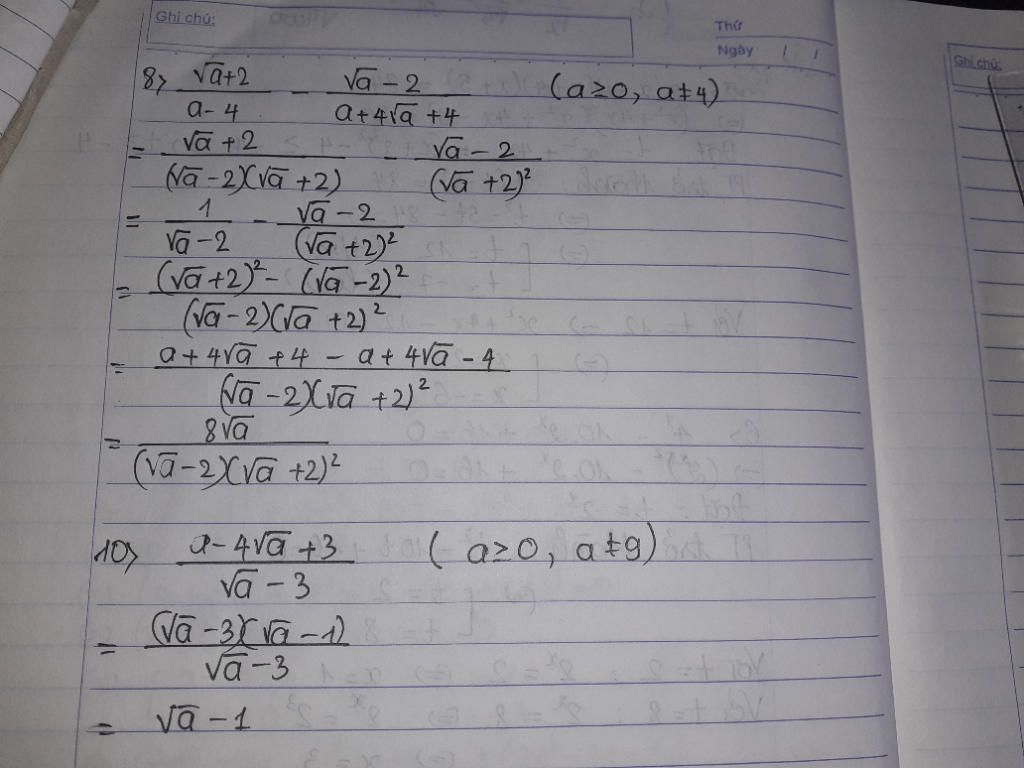 Ghi chú:
Thứ
Ngày / /
Ghi chú:
8> (√a+2)/(a-4) - (√a-2)/(a+4√a+4) (a≥0, a≠4)
= (√a+2)/((√a-2)(√a+2)) - (√a-2)/((√a+2)²)
= 1/(√a-2) - (√a-2)/((√a+2)²)
= ((√a+2)²-(√a-2)²)/((√a-2)(√a+2)²)
= (a+4√a+4-a+4√a-4)/((√a-2)(√a+2)²)
= 8√a/((√a-2)(√a+2)²)
10> (a-4√a+3)/(√a-3) (a≥0, a≠9)
= ((√a-3)(√a-1))/(√a-3)
= √a-1